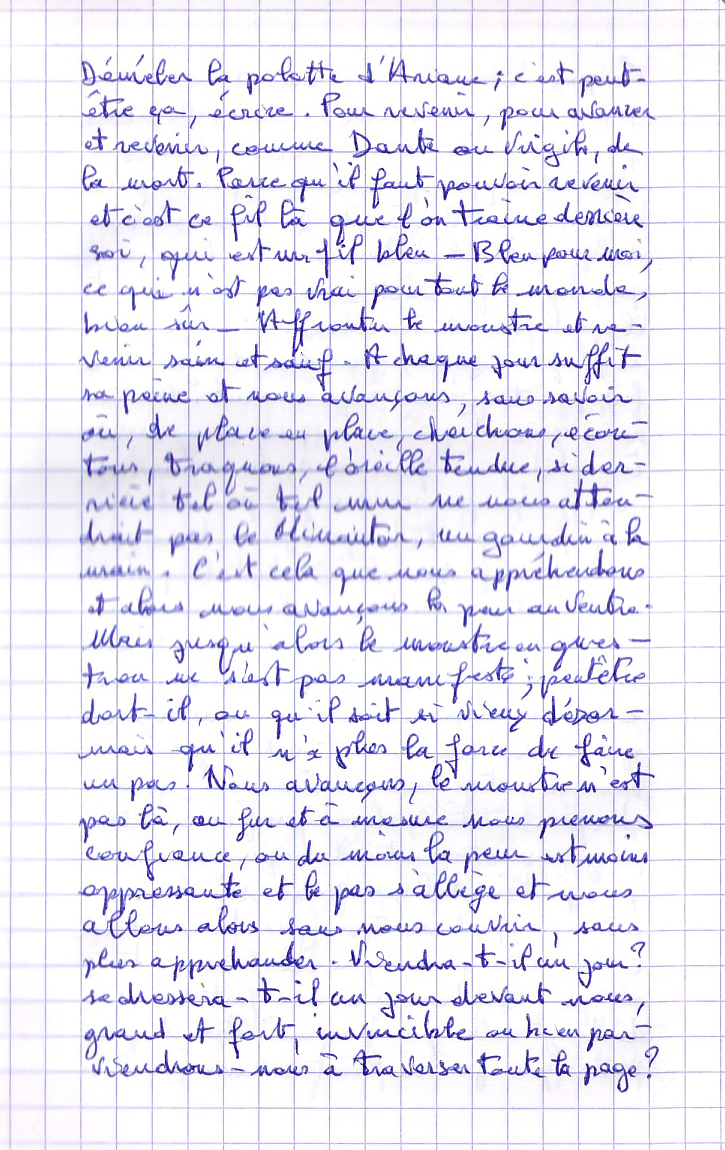 Démêler la pelotte d'Ariane ; c'est peut-
être ça, écrire. Pour revenir, pour avancer
et revenir, comme Dante ou Virgile, de
la mort. Parce qu'il faut pouvoir revenir
et c'est ce fil là que l'on traîne derrière
soi, qui est un fil bleu — Bleu pour moi,
ce qui n'est pas vrai pour tout le monde,
bien sûr — Affronter le monstre et re-
venir sain et sauf. A chaque jour suffit
sa peine et nous avançons, sans savoir
où, de place en place, cherchons, écou-
tons, traquons, l'oreille tendue, si der-
rière tel ou tel mur ne nous atten-
drait pas le Minautor, un gourdin à la
main. C'est cela que nous appréhendons
et alors nous avançons la peur au ventre.
Mais jusqu'alors le monstre en ques-
tion ne s'est pas manifesté ; peut être
dort-il, ou qu'il soit si vieux désor-
mais qu'il n'a plus la force de faire
un pas. Nous avançons, le monstre n'est
pas là, au fur et à mesure nous prenons
confiance, ou du moins la peur est moins
oppressante et le pas s'allège et nous
allons alors sans nous couvrir, sans
plus appréhender. Viendra-t-il un jour ?
se dressera-t-il un jour devant nous,
grand et fort, invincible ou bien par-
viendrons-nous à traverser toute la page ?